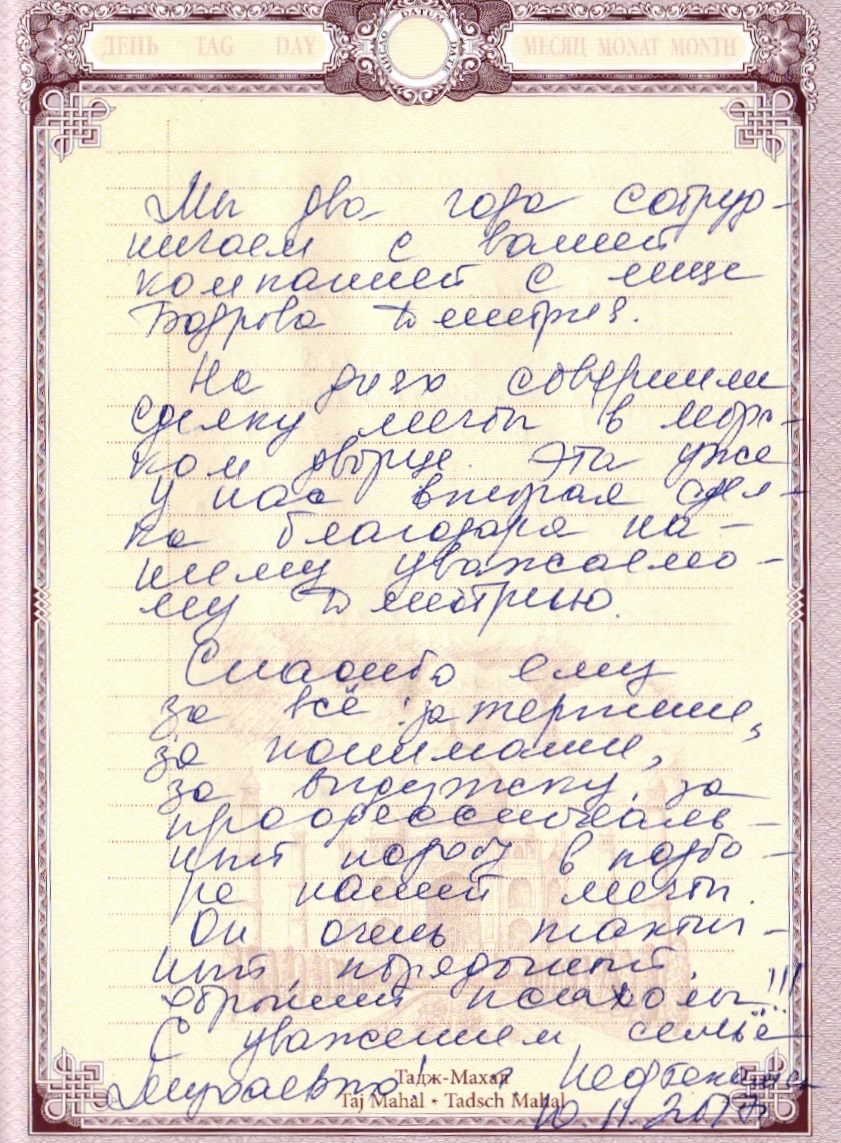 ДЕНЬ TAG DAY
ЧИСЛО DATUM DATE
МЕСЯЦ MONAT MONTH
Мы два года сотруд-
ничаем с вашей
компанией с лице
Бодрова Дмитрия.
На днях совершили
сделку мечты в морс-
ком дворце. Эта уже
у нас вторая сдел-
ка благодаря на-
шему уважаемо-
му Дмитрию.
Спасибо ему
за всё: за терпение,
за понимание,
за выдержку, за
профессиональ-
ный подход в подбо-
ре нашей мечты.
Он очень тактич-
ный, порядочный,
хороший психолог!!!
С уважением, семьё
10.11.2017г.
Тадж-Махал
Taj Mahal • Tadsch Mahal